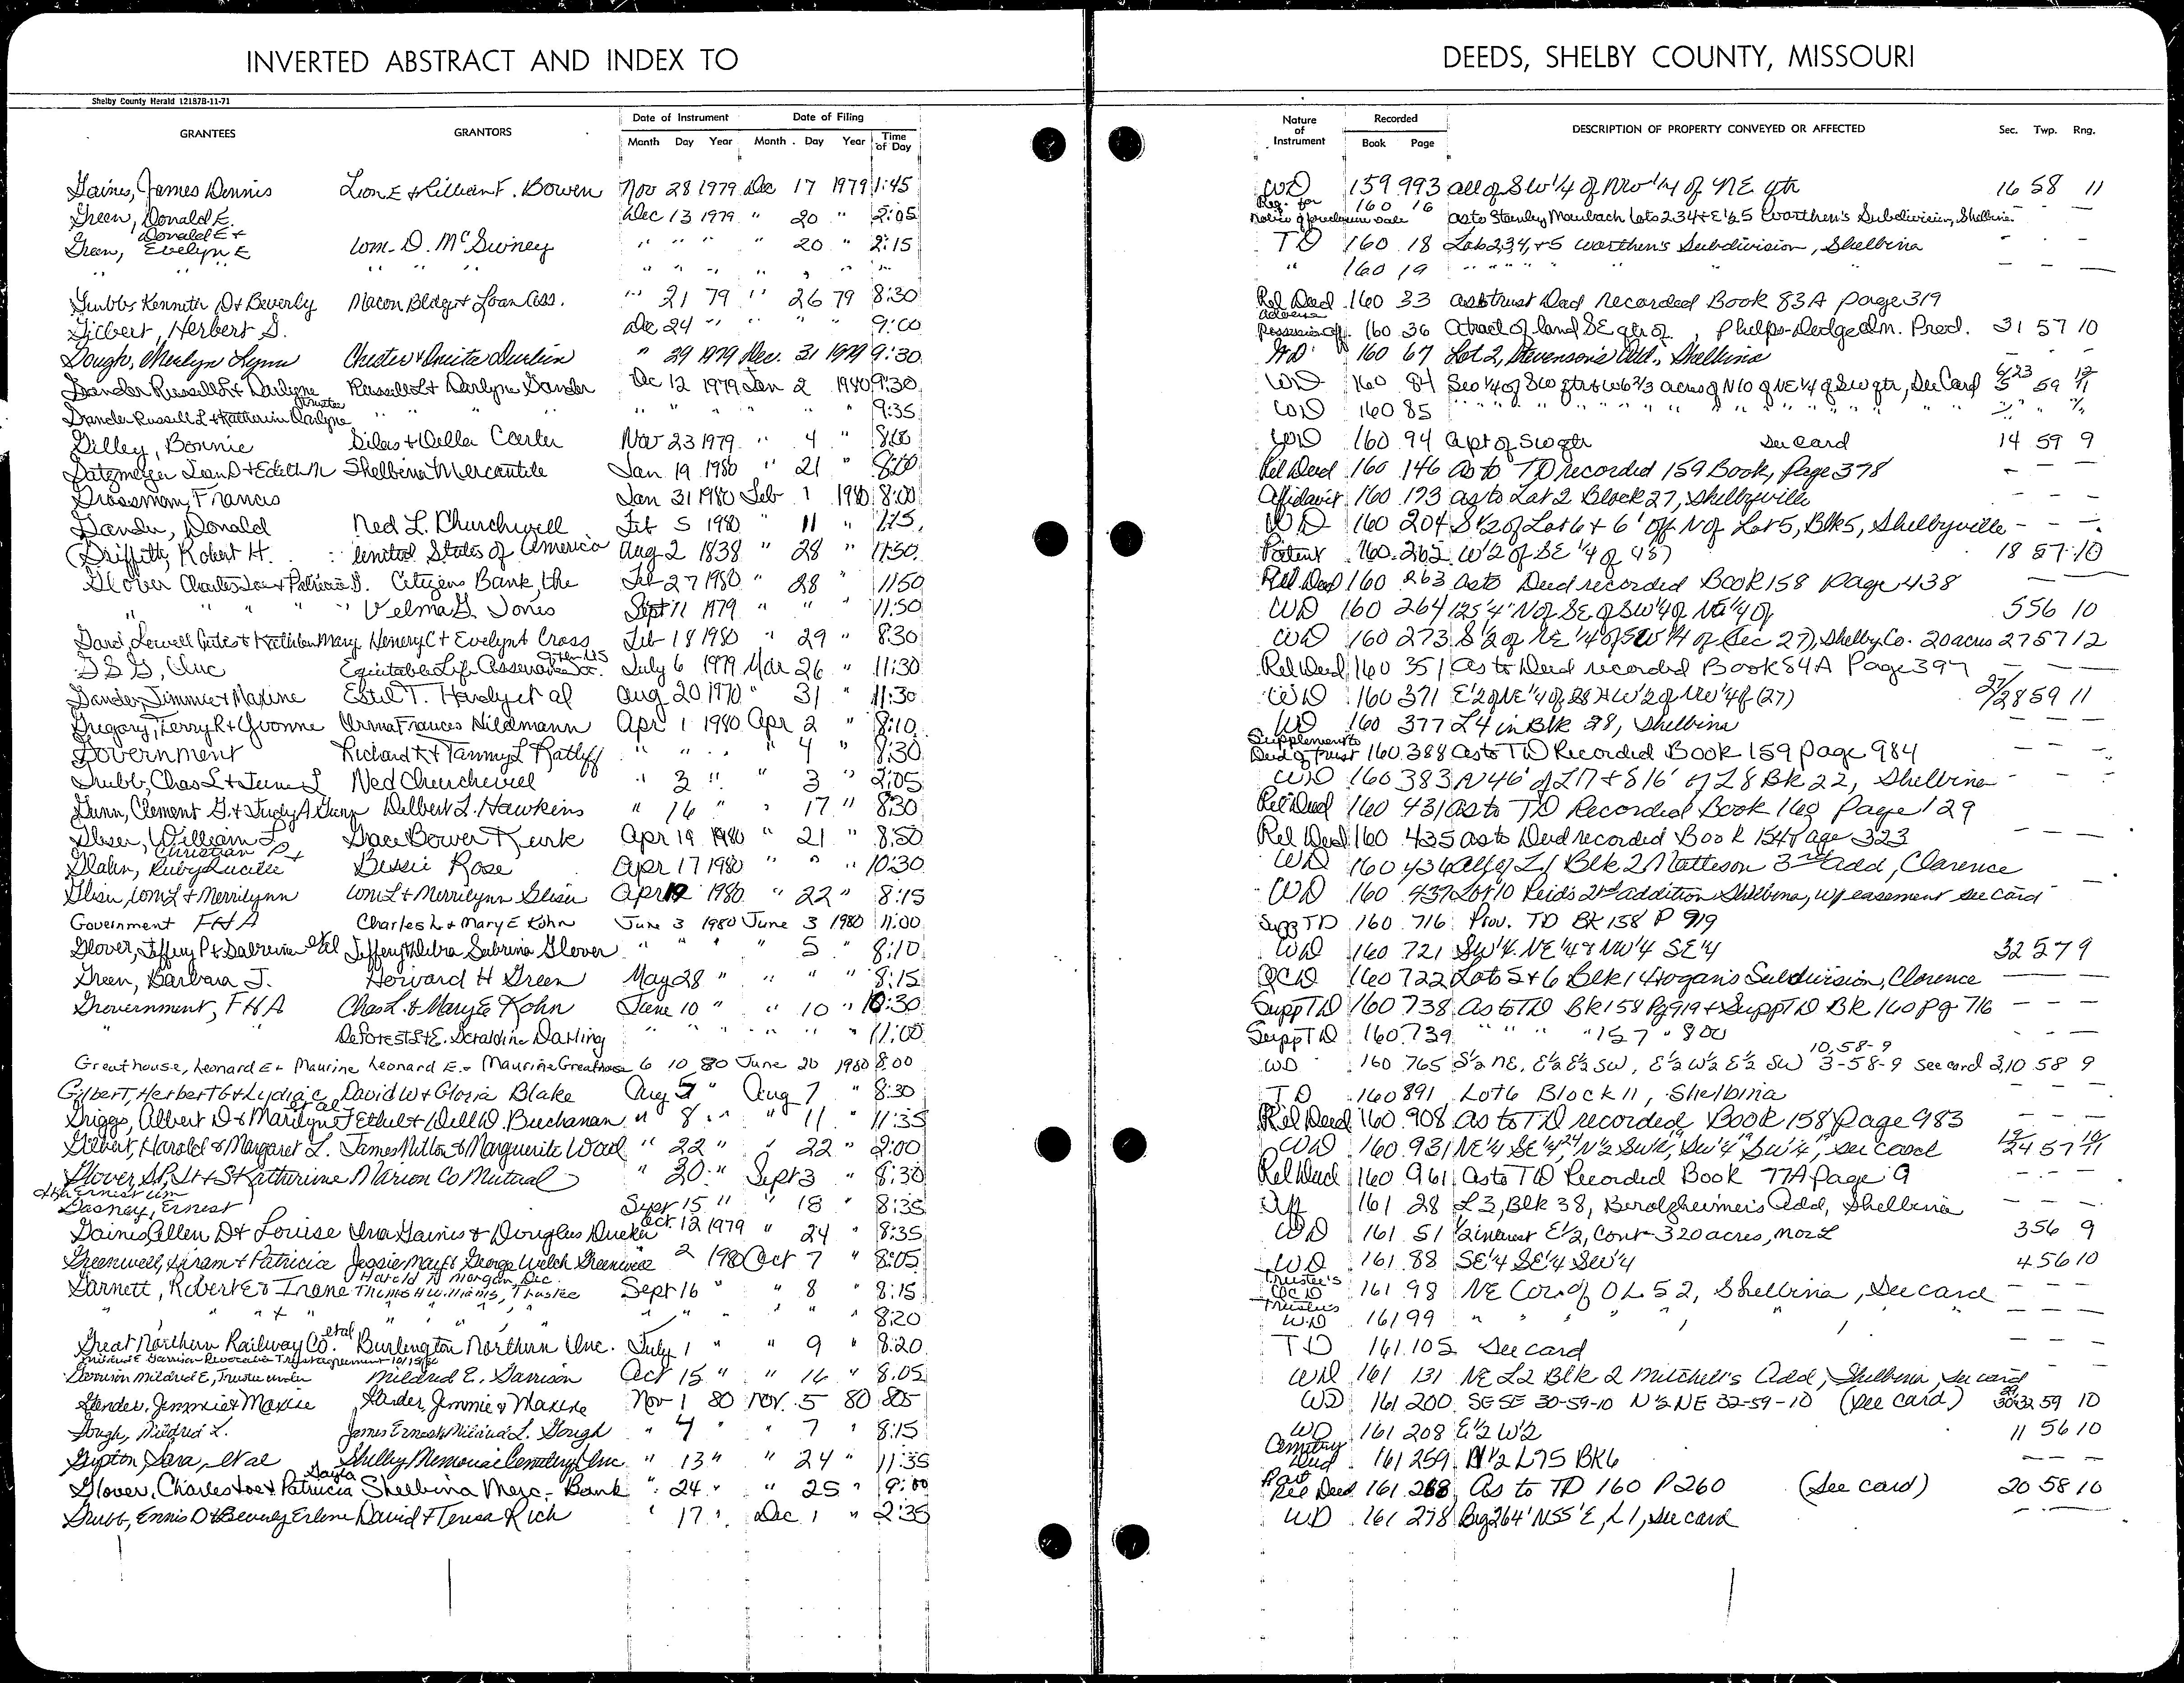 INVERTED ABSTRACT AND INDEX TO DEEDS, SHELBY COUNTY, MISSOURI
Shelby County Herald 12187B-11-71
GRANTEES GRANTORS Date of Instrument Date of Filing Nature of Instrument Recorded DESCRIPTION OF PROPERTY CONVEYED OR AFFECTED Sec. Twp. Rng.
Month Day Year Month Day Year Time of Day Book Page
Gaines, James Dennis Leon E & Lillian F. Bowen Nov 28 1979 Dec 17 1979 1:45 WD 159 993 all of SW 1/4 of NW 1/4 of NE qtr 16 58 11
Green, Donald E. Dec 13 1979 " 20 " 2:05 Req. for Notice of Sale 160 16 as to Stanley Maubach Lots 2 3 4 & E 1/2 5 Worthen's Subdivision, Shelbina
Green, Donald E & Evelyn E Wm. D. McSwiney " " " " 20 " 2:15 TD 160 18 Lots 2, 3, 4, & 5 Worthen's Subdivision, Shelbina - - -
" " " " " " " " " " " 160 19 " " " " " " "
Grubbs Kenneth D & Beverly Macon Bldg & Loan Ass. " 21 79 " 26 79 8:30 Rel Deed 160 33 as to trust Deed recorded Book 83A page 319
Gilbert, Herbert G. Dec 24 " " " " 9:00 Adverse Possession Aff. 160 36 A tract of land SE qtr of , Phelps-Dodge Prod. 31 57 10
Gough, Merlyn Lynn Chester & Anita Durbin " 29 1979 Dec. 31 1979 9:30 WD 160 67 Lot 2, Stevenson's Add., Shelbina
Gander Russell L & Darlyne Russell L & Darlyne Gander Dec 12 1979 Jan 2 1980 9:30 WD 160 84 SW 1/4 of SW qtr & W 6 2/3 acres of N 10 of NE 1/4 of SW qtr, See Card 59
Gander Russell L & Katherine Darlyne Trustee " " " " " " " " 9:35 WD 160 85 " " " " " " " "
Gilley, Bonnie Silas & Della Carter Nov 23 1979 " 4 " WD 160 94 A pt of SW qtr See Card 14 59 9
Gatzmeyer Leo D & Edith M Shelbina Mercantile Jan 19 1980 " 21 " Rel Deed 160 146 As to TD recorded 159 Book, page 378 - - -
Grossman, Francis Jan 31 1980 Feb 1 1980 8:00 Affidavit 160 173 as to Lot 2 Block 27, Shelbyville - - -
Gander, Donald Ned L. Churchwell Feb 5 1980 " 11 " 1:15 WD 160 204 S 1/2 of Lot 6 & 6' off N of Lot 5, Blk 5, Shelbyville - - -
Griffith, Robert H. United States of America Aug 2 1838 " 28 " 11:50 Patent 160 262 W 1/2 of SE 1/4 of 18 57 10
Glover Charles Joe & Patricia G. Citizens Bank, the Feb 27 1980 " 28 " 11:50 Rel. Deed 160 263 as to Deed recorded Book 158 page 438
" " " " Velma G Jones Sept 11 1979 " " " 11:50 WD 160 264 125'4" N of SE of SW 1/4 of NE 1/4 of 5 56 10
Gard Lowell Curtis & Kathleen Mary Henery C & Evelyn A Cross Feb 18 1980 " 29 " 8:30 WD 160 273 S 1/2 of NE 1/4 of SW 1/4 of (Sec 27), Shelby Co. 20 acres 27 57 12
G S G, Inc Equitable Life Assurance Soc. of the US July 6 1979 Mar 26 " 11:30 Rel Deed 160 351 As to Deed recorded Book 84A Page 397 - - -
Gander, Jimmie & Maxine Estil T. Hardy et al Aug 20 1970 " 31 " 11:30 WD 160 371 E 1/2 of NE 1/4 of 28 & W 1/2 of NW 1/4 of (27) 27/28 59 11
Gregory, Terry R & Yvonne Orma Frances Hildmann Apr 1 1980 Apr 2 " 8:10 WD 160 377 L4 in Blk 28, Shelbina - - -
Government Richard K & Tammy L Ratliff " " " " 4 " 8:30 Supplement to Deed of Trust 160 388 As to TD Recorded Book 159 page 984 - - -
Grubb, Chas L & June L Ned Churchwell " 3 " " 3 " 2:05 WD 160 383 N 46' of L 17 & S 16' of L 8 Bk 22, Shelbina - - -
Gunn, Clement G. & Judy A Gunn Delbert L. Hawkins " 16 " " 17 " 8:30 Rel Deed 160 431 as to TD Recorded Book 160 Page 129
Glisen, William L Grace Bower Kirk Apr 19 1980 " 21 " 8:50 Rel Deed 160 435 as to Deed recorded Book 154 Page 323 - - -
Glahn, Christian P & Ruby Lucille Bessie Rose Apr 17 1980 " " " 10:30 WD 160 436 All of L1 Blk 2 Matteson 3rd Add, Clarence
Glisen, Wm L & Merrilynn Wm L & Merrilynn Glisen Apr 19 1980 " 22 " 8:15 WD 160 437 Lot 10 Reid's 2nd addition Shelbina, w/ easement see card
Government FHA Charles L & Mary E Kohn June 3 1980 June 3 1980 11:00 Supp TD 160 716 Prov. TD BK 158 P 919
Glover, Jeffery P & Sabrina et al Jeffery & Debra Sabrina Glover " " " " 5 " 8:10 WD 160 721 SW 1/4 NE 1/4 & NW 1/4 SE 1/4 32 57 9
Green, Barbara J. Howard H Green May 28 " " " " 8:15 QCD 160 722 Lots 5 & 6 Blk 1 Hogan's Subdivision, Clarence
Government, FHA Chas L. & Mary E Kohn June 10 " " 10 " 10:30 Supp TD 160 738 as to TD Bk 158 Pg 919 & Supp TD Bk 160 Pg 716 - - -
" " Deforest & E. Geraldine Darling " " " " " " 11:00 Supp TD 160 739 " " " " 157 " 800 - - -
Greathouse, Leonard E & Maurine Leonard E. & Maurine Greathouse 6 10 80 June 20 1980 8:00 WD 160 765 S 1/2 NE, E 1/2 E 1/2 SW, E 1/2 W 1/2 E 1/2 SW 10, 58-9 3-58-9 see card 3,10 58 9
Gilbert, Herbert G & Lydia C David W & Gloria Blake Aug 5 " Aug 7 " 8:30 TD 160 891 Lot 6 Block 11, Shelbina
Griggs, Albert D & Marilyn J et al Ethel & Will D. Buchanan " 8 " " 11 " 11:35 Rel Deed 160 908 as to TD recorded Book 158 Page 983 - - -
Gilbert, Harold & Margaret L. James Milton & Marguerite Wood " 22 " " 22 " 2:00 WD 160 931 NE 1/4 SE 1/4 24, N 1/2 SW 1/4, SW 1/4 SW 1/4, see card 19/24 57 10/11
Glover, S.P. Jr & S Katherine Marion Co Mutual " 30 " Sept 3 " 8:30 Rel Deed 160 961 As to TD Recorded Book 77A page 9 - - -
Gasney, Ernest aka Ernest Wm Sept 15 " " 18 " 8:35 Aff 161 28 L3, Blk 38, Berolzheimer's Add, Shelbina - - -
Gaines Allen D & Louise Ora Gaines & Douglas Oct. 12 1979 " 24 " 8:35 WD 161 51 1/2 interest E 1/2, Cont 320 acres, M or L 3 56 9
Greenwell, Hiram & Patricia Jessie May & George Welch Greenwell " 2 1980 Oct 7 " 8:05 WD 161 88 SE 1/4 SE 1/4 SW 1/4 4 56 10
Garnett, Robert E & Irene Harold N Morgan, Dec. Thomas H Williams, Trustee Sept 16 " " 8 " 8:15 Trustee's QCD 161 98 NE Cor. of OL 52, Shelbina, See card
" " & " " " " " " " " 8:20 Trustees WD 161 99 " " " " " "
Great Northern Railway Co. et al Burlington Northern Inc. July 1 " " 9 " 8:20 TD 161 105 See card - - -
Garrison Mildred E, Trustee under Mildred E Garrison Revocable Trust agreement 10/15/80 Mildred E. Garrison Oct 15 " " 16 " 8:05 WD 161 131 NE L2 Blk 2 Mitchell's Add, Shelbina, see card
Gander, Jimmie & Maxine Gander, Jimmie & Maxine Nov 1 80 Nov. 5 80 805 WD 161 200 SE SE 30-59-10 N 1/2 NE 32-59-10 (see card) 30 32 59 10
Gough, Mildred L. James Ernest & Mildred L. Gough " 4 " " 7 " 8:15 WD 161 208 E 1/2 W 1/2 11 56 10
Gupton, Sara, et al Shelby Memorial Cemetery Inc " 13 " " 24 " 11:35 Cemetery Deed 161 259 N 1/2 L 75 BK 6 - - -
Glover, Charles Joe & Patricia Gayla Shelbina Merc. Bank " 24 " " 25 " 9:00 Part Rel Deed 161 268 As to TD 160 P 260 (see card) 20 58 10
Grubb, Ennis D & Beverly Erlene David & Teresa Rich " 17 " Dec 1 " 2:35 WD 161 278 Beg 264' N 55' E, L1, see card